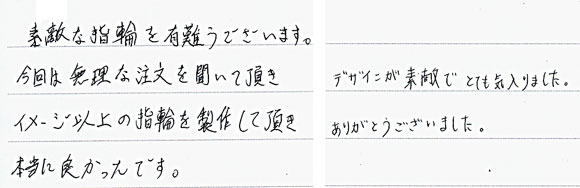 素敵な指輪を有難うございます。
今回は無理な注文を聞いて頂き
イメージ以上の指輪を製作して頂き
本当に良かったです。
デザインが素敵でとても気入りました。
ありがとうございました。